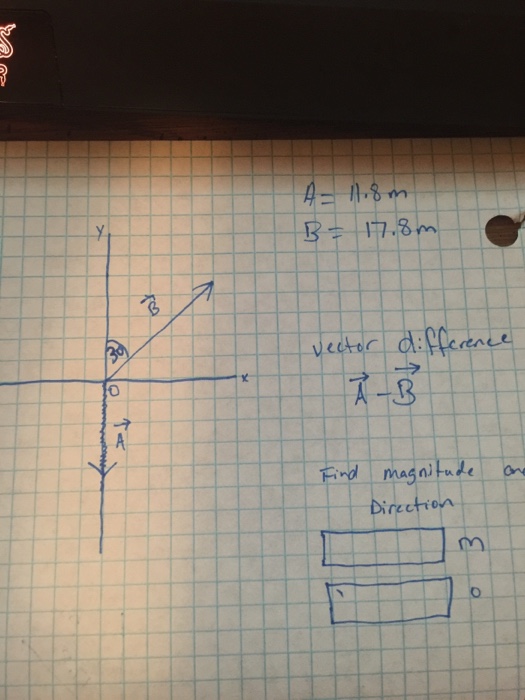 A = 11.8m
B = 17.8m
y
B
30
x
O
A
vector difference
A - B
Find magnitude
Direction
m
o